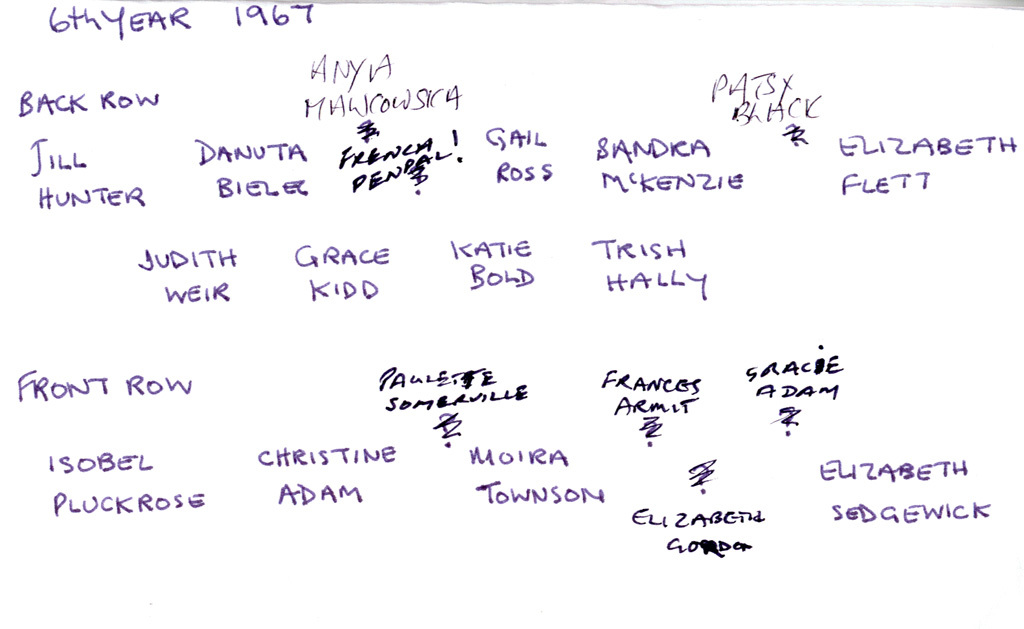 6th YEAR 1967
ANYIA
MAWROWSKA
PATSY
BLACK
BACK ROW
JILL
HUNTER
DANUTA
BIELEC
FRENCH
PENPAL!
GAIL
ROSS
SANDRA
McKENZIE
ELIZABETH
FLETT
JUDITH
WEIR
GRACE
KIDD
KATIE
BOLD
TRISH
HALLY
FRONT ROW
PAULETTE
SOMERVILLE
FRANCES
ARMIT
GRACIE
ADAM
ISOBEL
PLUCKROSE
CHRISTINE
ADAM
MOIRA
TOWNSON
ELIZABETH
GORDON
ELIZABETH
SEDGEWICK